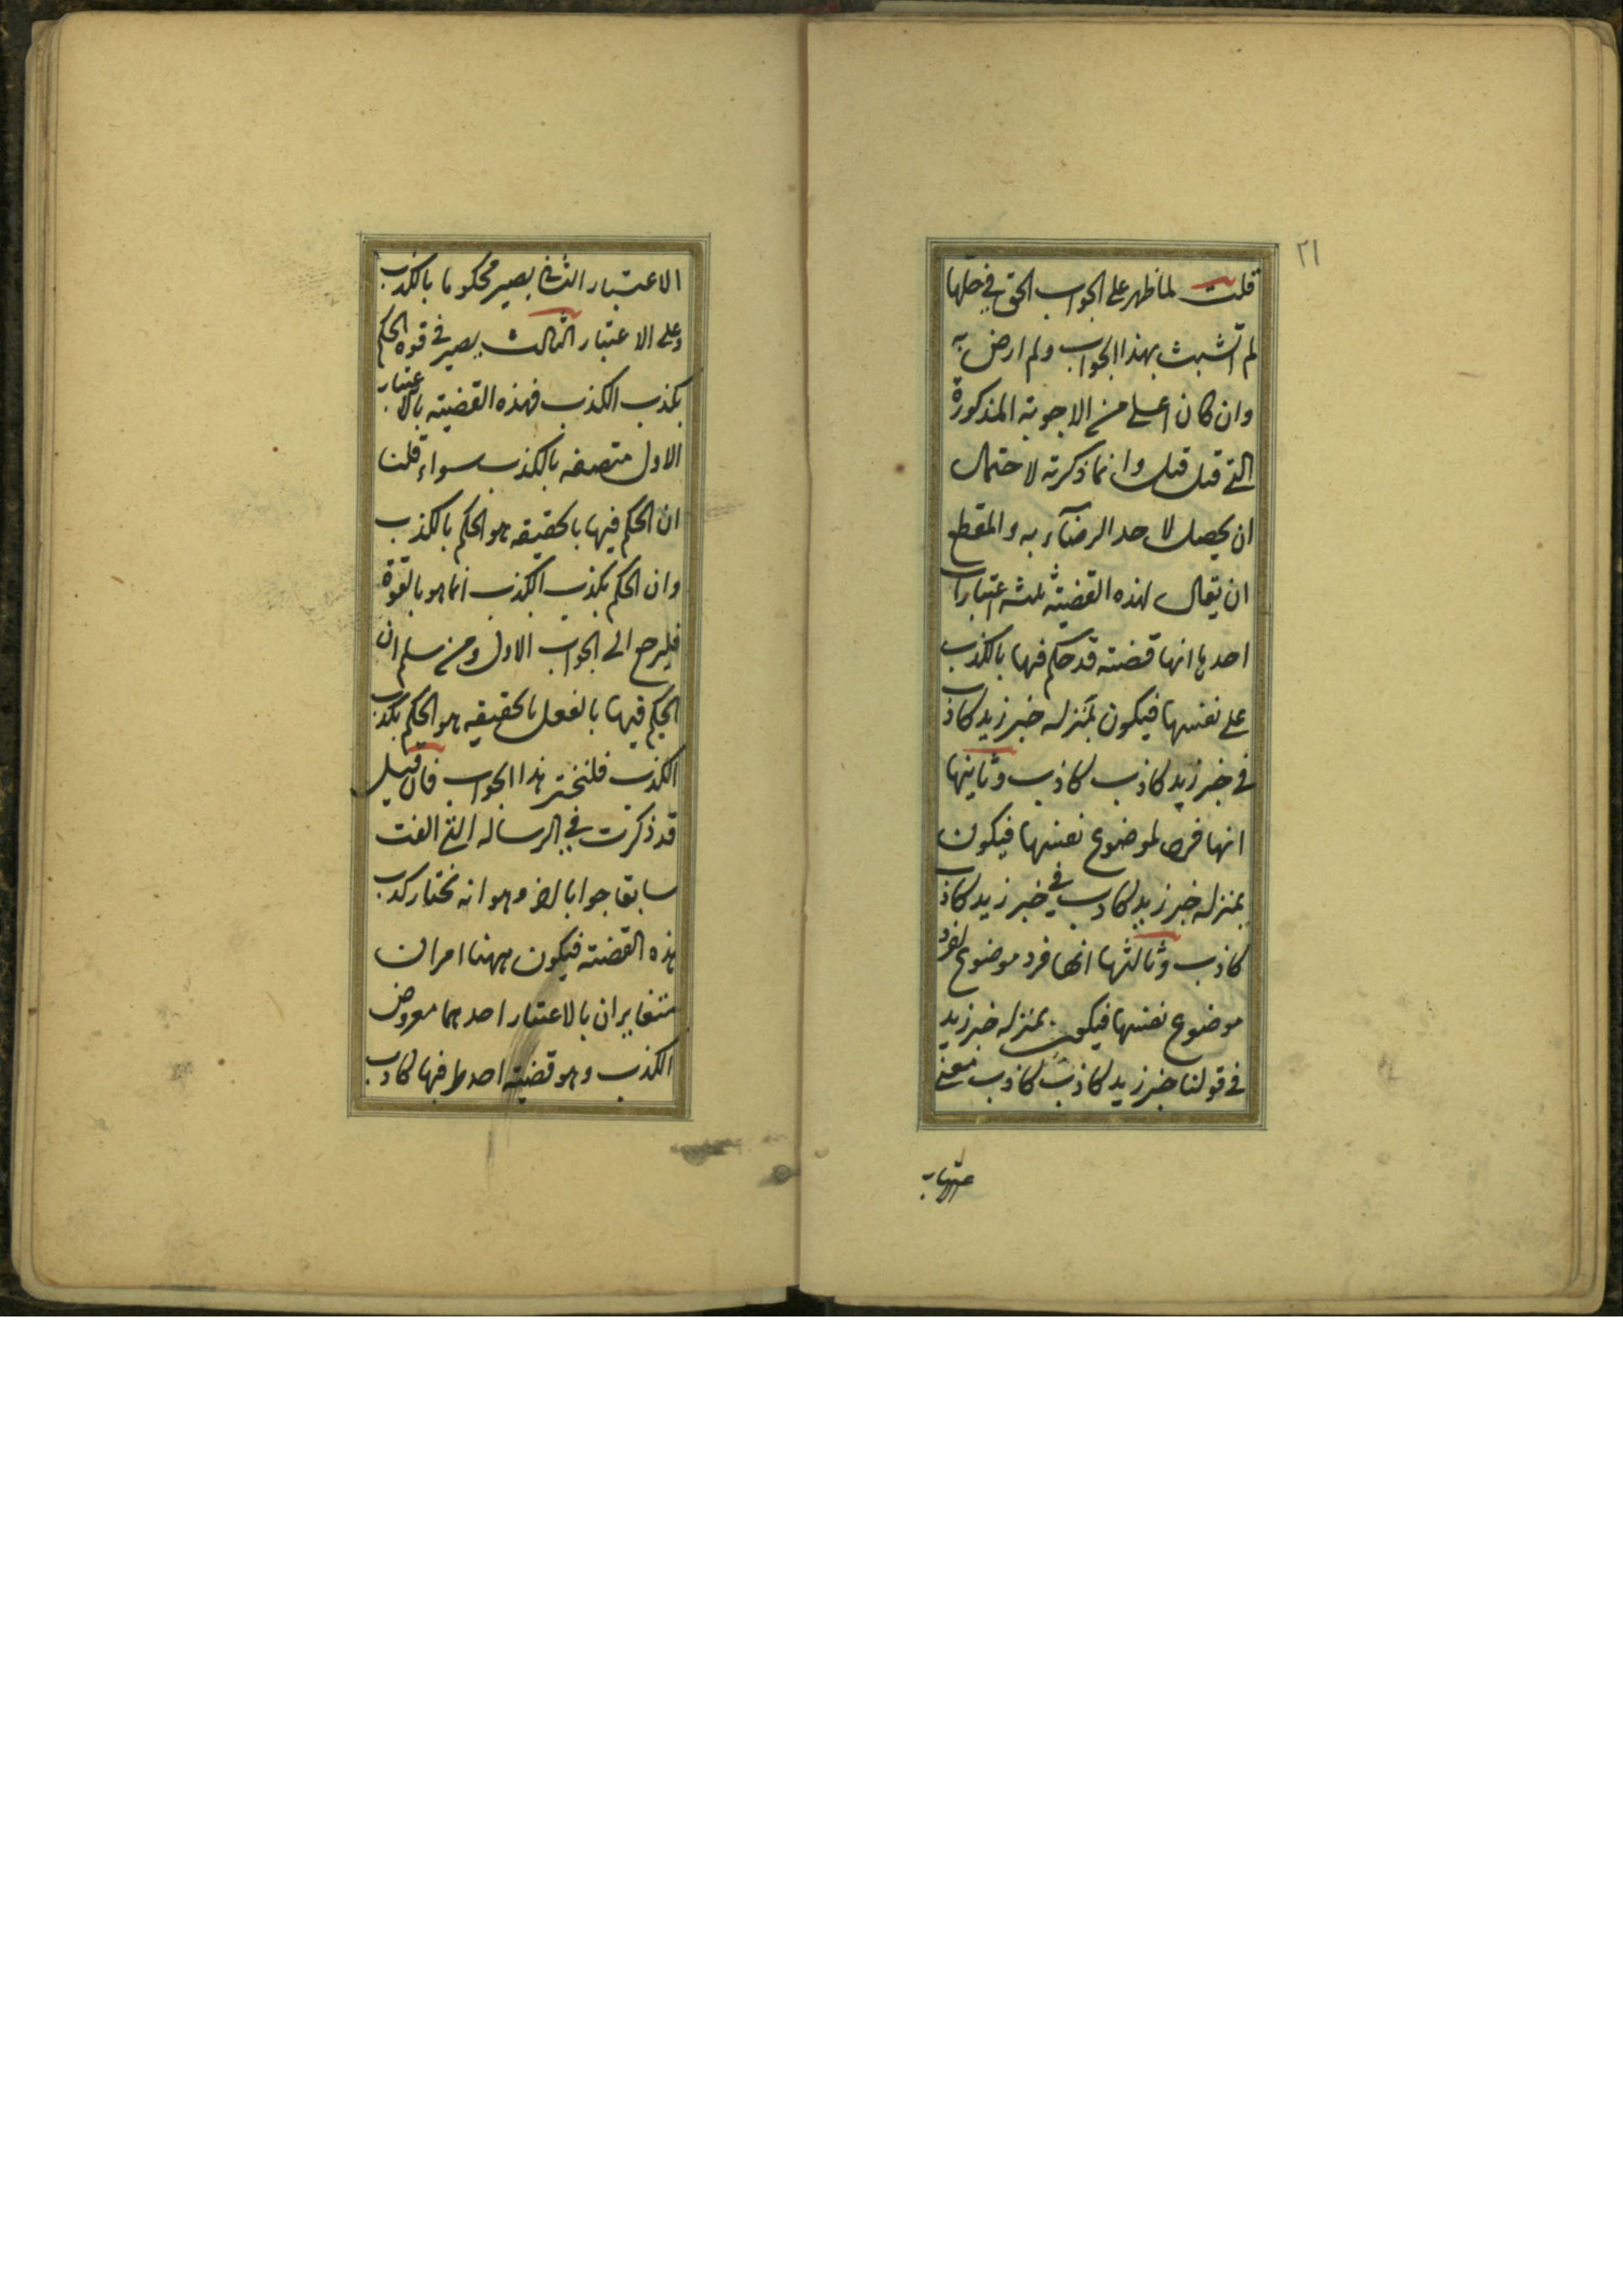 ٢١
قلت لما ظهر على الجواب الحق في حلها
لم اتشبث بهذا الجواب ولم ارض به
وان كان اعلى من الاجوبة المذكورة
التي قبل قبل وانما ذكرته لاحتمال
ان يحصل لاحد الرضآء به والمقطع
ان يقال لهذه القضية ثلثة اعتبارات
احدها انها قضية قد حكم فيها بالكذب
على نفسها فيكون بمنزلة خبر زيد كاذب
في خبر زيد كاذب كاذب وثانيها
انها فرد لموضوع نفسها فيكون
بمنزلة خبر زيد كاذب في خبر زيد كاذب
كاذب وثالثها انها فرد موضوع لفرد
موضوع نفسها فيكون بمنزلة خبر زيد
في قولنا خبر زيد كاذب كاذب فعلى
الاعتبار الثاني يصير محكوما بالكذب
وعلى الاعتبار الثالث يصير في قوة الحكم
بكذب الكذب فهذه القضية بالاعتبار
الاول متصفة بالكذب سواء قلنا
ان الحكم فيها بالحقيقة هو الحكم بالكذب
وان الحكم بكذب الكذب انما هو بالقوة
فليرجع الى الجواب الاول ومن سلم ان
الحكم فيها بالفعل بالحقيقة هو الحكم بكذب
الكذب فلنختر هذا الجواب فان قيل
قد ذكرت في الرسالة التي الفت
سابقا جوابا اخر وهو انه نختار كذب
هذه القضية فيكون ههنا امران
متغايران بالاعتبار احدهما معروض
الكذب وهو قضية احد طرفيها كاذب